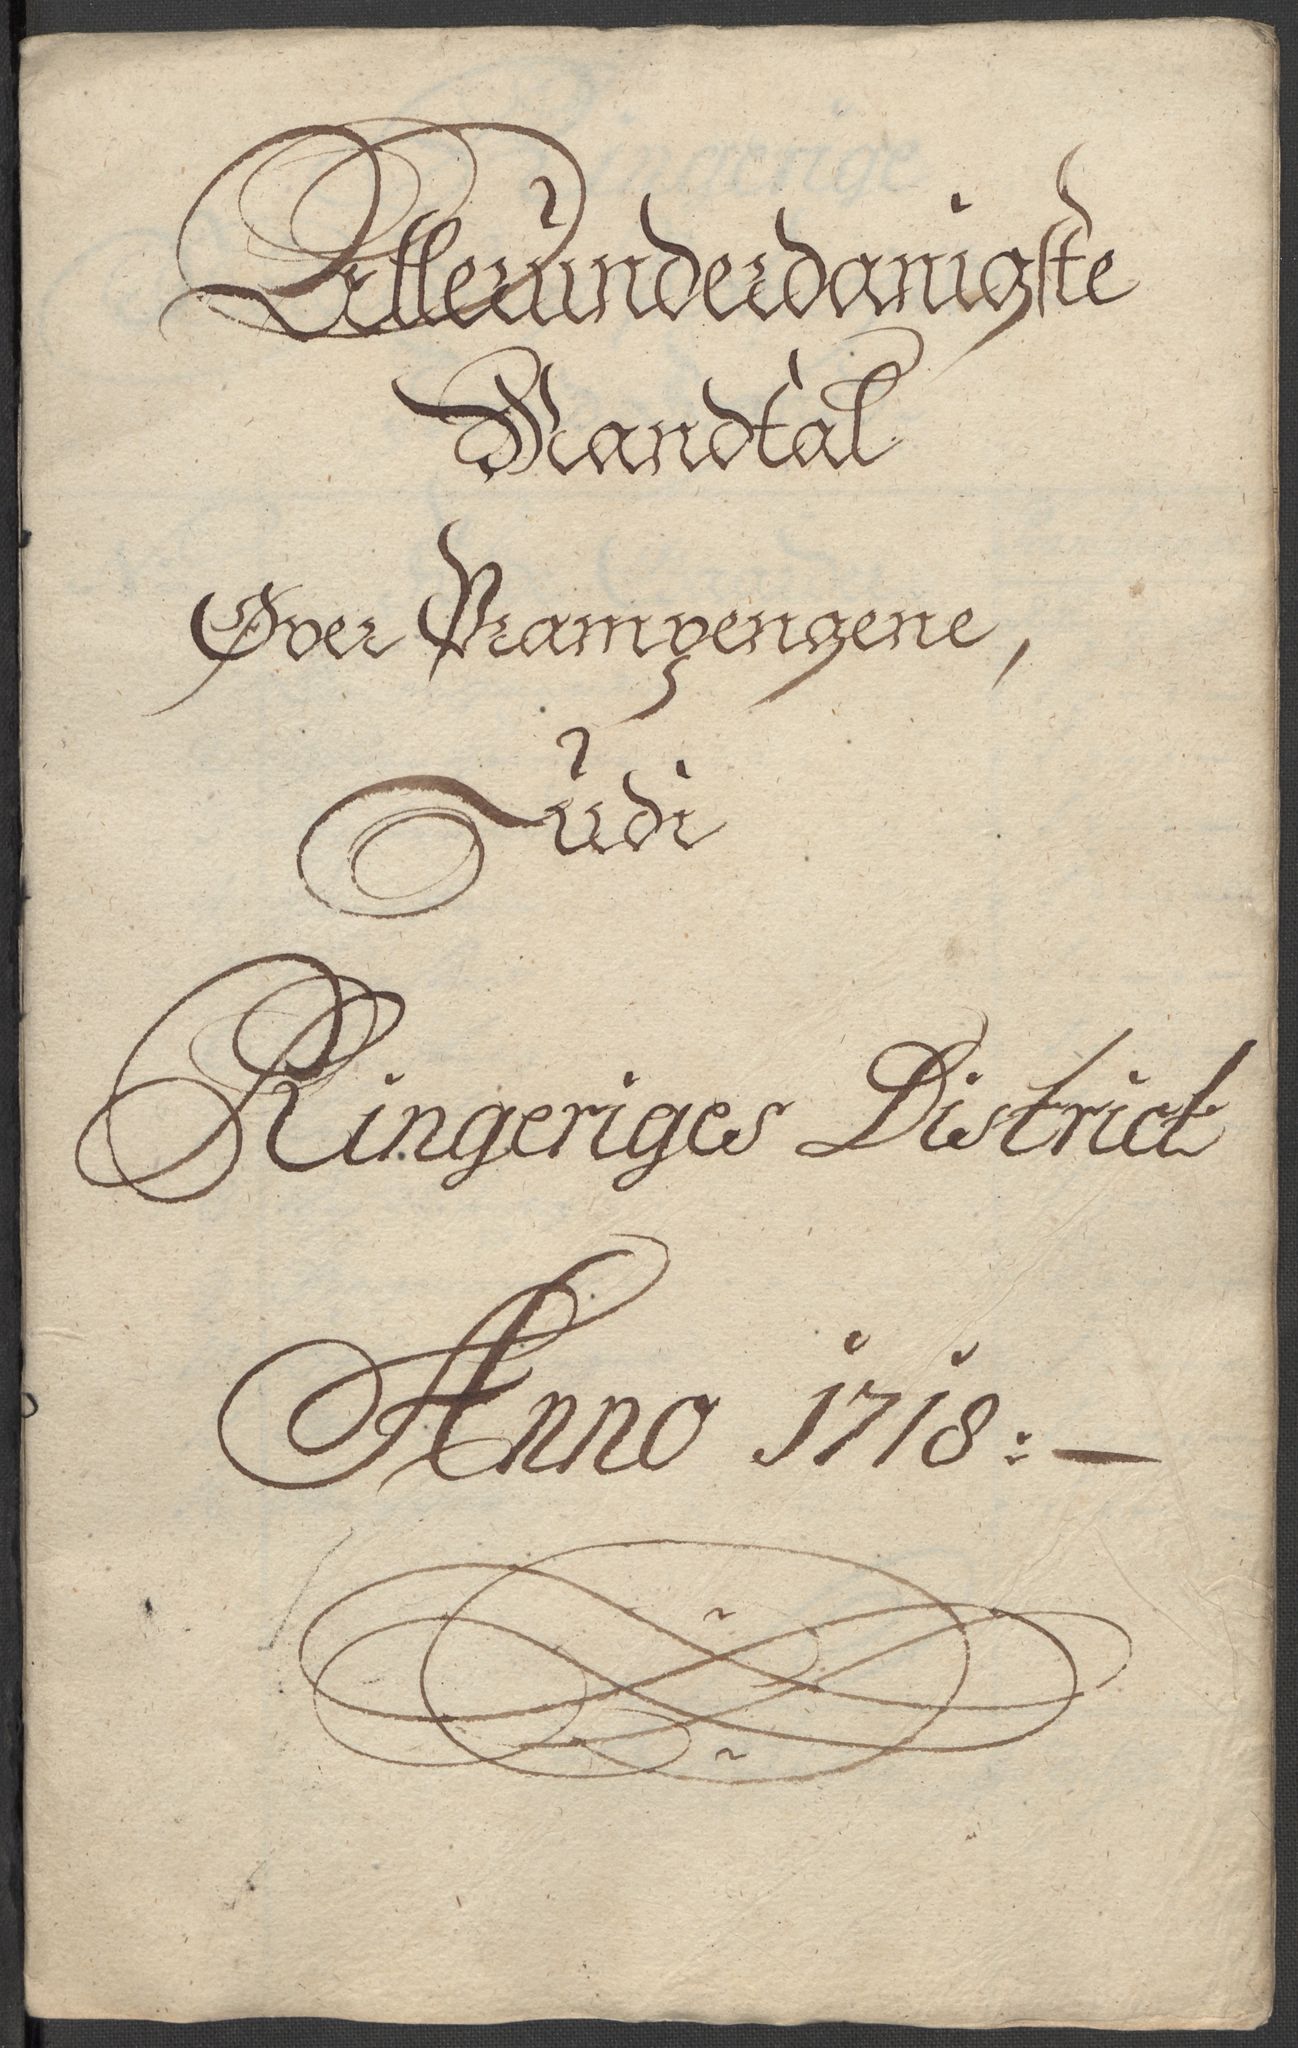 Allerunderdanigste
Mandtal
Over Prampengene,
Udi
Ringeriges District
Anno 1718:—